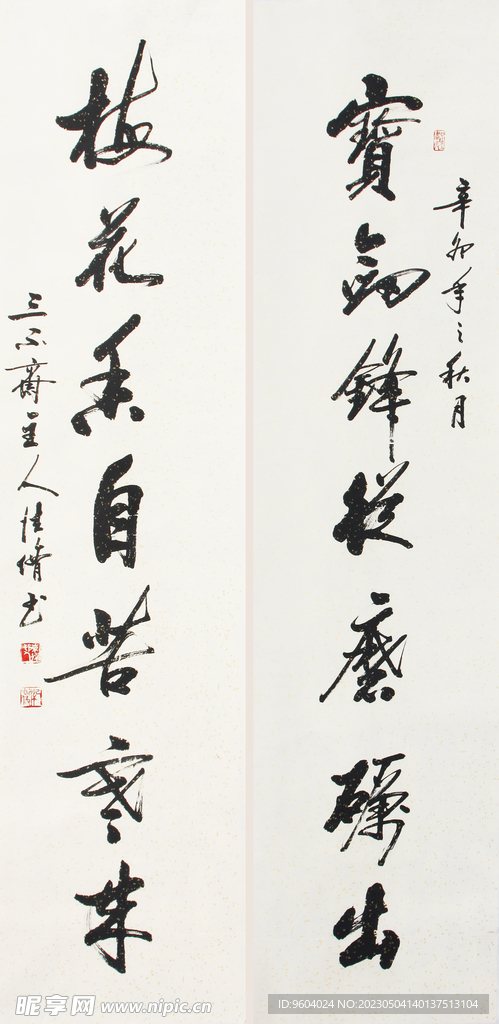 辛卯年之秋月
寶劍鋒從磨礪出
梅花香自苦寒來
三不齋主人佳倩书
昵享网 www.nipic.cn
ID:9604024 NO:20230504140137513104